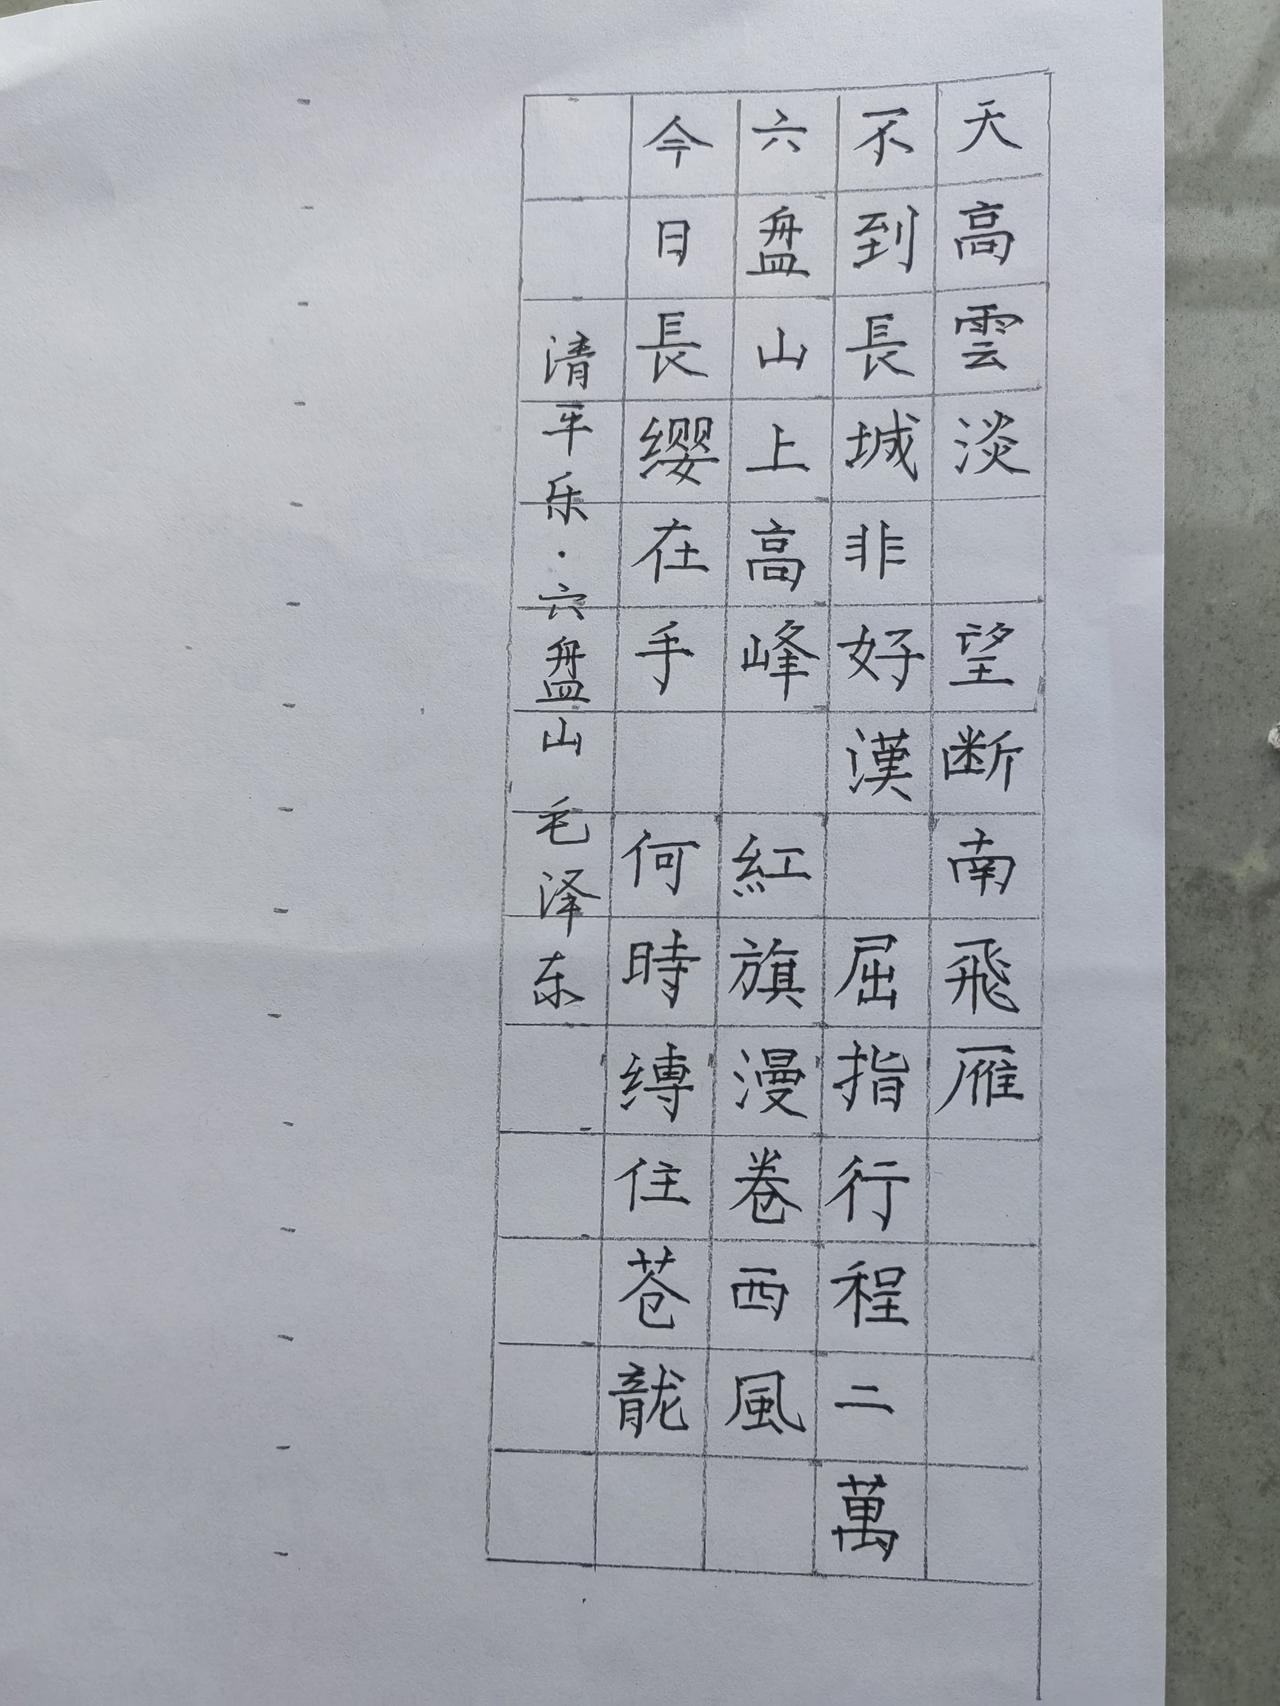 天高雲淡 望断南飛雁
不到長城非好漢 屈指行程二萬
六盘山上高峰 紅旗漫卷西風
今日長缨在手 何時缚住苍龍
清平乐·六盘山 毛泽东